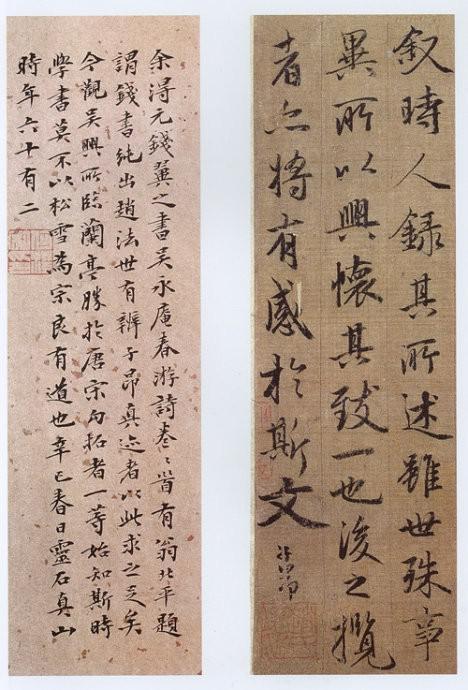 叙時人録其所述雖世殊事
異所以興懷其致一也後之攬
者亦將有感於斯文
子昂
余得元錢翼之書吴永庵春游詩卷〻首有翁北平題
謂錢書純出趙法世有辨子昂真迹者以此求之足矣
今觀吴興所臨蘭亭勝於唐宋勾拓者一等始知斯時
學書莫不以松雪為宗良有道也辛巳春日靈石真山
時年六十有二